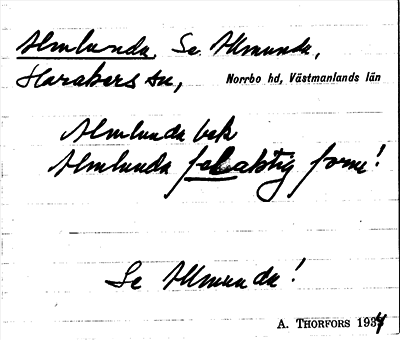 Almlunda. Se Allmunda,
Harakers sn, Norrbo hd, Västmanlands län
Almlunda bek
Almlunda felaktig form!
Se Allmunda!
A. THORFORS 1934